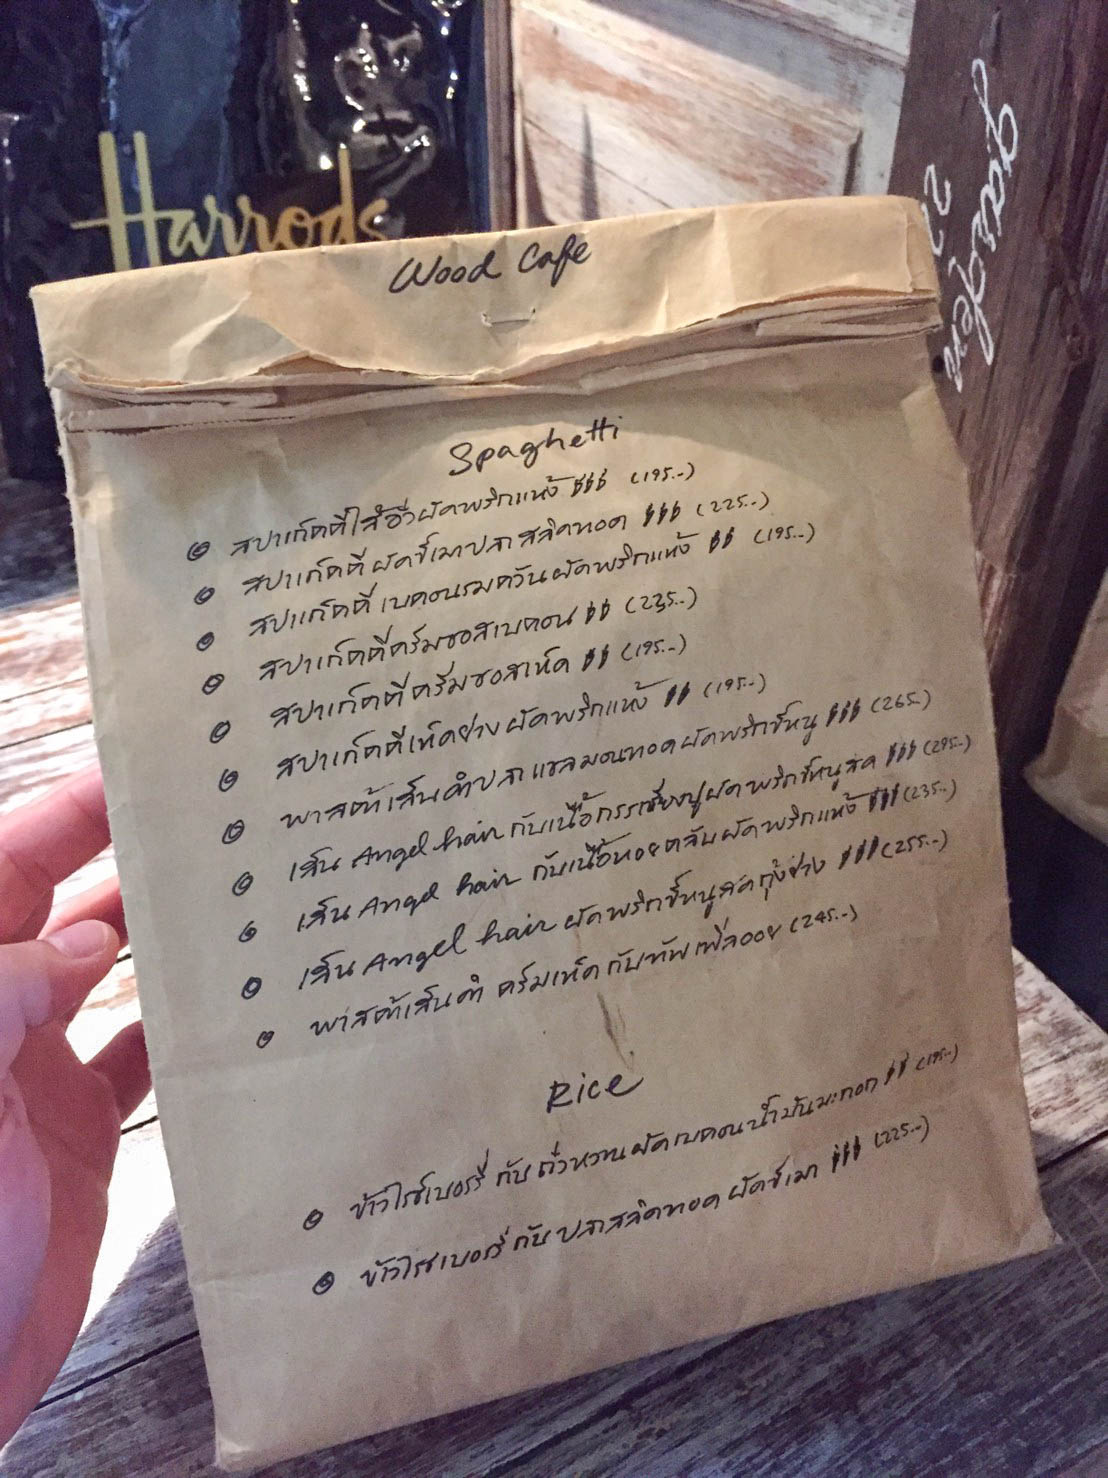 Harrods
Wood Cafe
Spaghetti
สปาเก็ตตี้ไส้อั่วผัดพริกแห้ง (195.-)
สปาเก็ตตี้ผัดขี้เมาปลาสลิดทอด (225.-)
สปาเก็ตตี้เบคอนรมควันผัดพริกแห้ง (195.-)
สปาเก็ตตี้ครีมซอสเบคอน (235.-)
สปาเก็ตตี้ครีมซอสเห็ด (195.-)
สปาเก็ตตี้เห็ดย่างผัดพริกแห้ง (195.-)
พาสต้าเส้นดำปลาแซลมอนทอดผัดพริกขี้หนู (265.-)
เส้น Angel hair กับเนื้อกรรเชียงปูผัดพริกขี้หนูสด (295.-)
เส้น Angel hair กับเนื้อหอยตลับผัดพริกแห้ง (235.-)
เส้น Angel hair ผัดพริกขี้หนูสดกุ้งย่าง (255.-)
พาสต้าเส้นดำ ครีมเห็ดกับทัฟเฟิลออย (245.-)
Rice
ข้าวไรซ์เบอร์รี่ กับ ถั่วหวานผัดเบคอนน้ำมันมะกอก (195.-)
ข้าวไรซเบอร์รี่ กับ ปลาสลิดทอด ผัดขี้เมา (225.-)